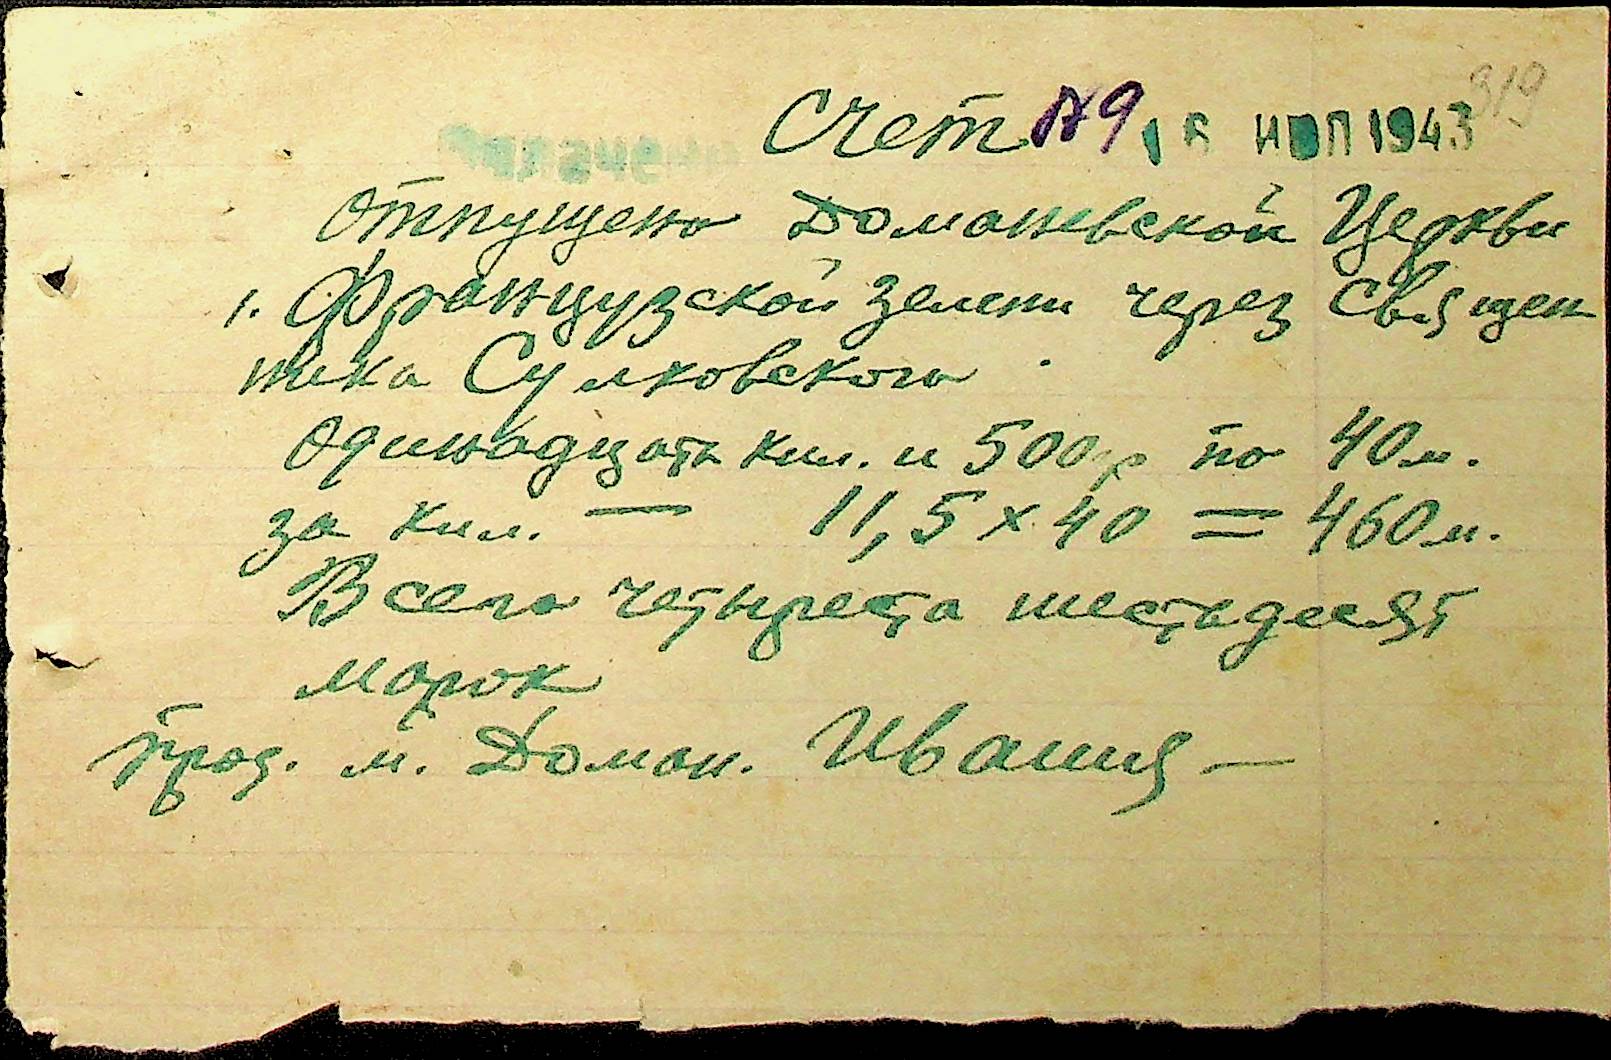 319
Счет №9 16 ИЮЛ 1943
Отпущено Доманевской Церкви
1. Французской зелени через Священ
ника Сулковского
Одинадцать кил. и 500гр по 40 м.
за кил. — 11,5 × 40 = 460 м.
Всего четыреста шестьдесят
марок
м. Доман.